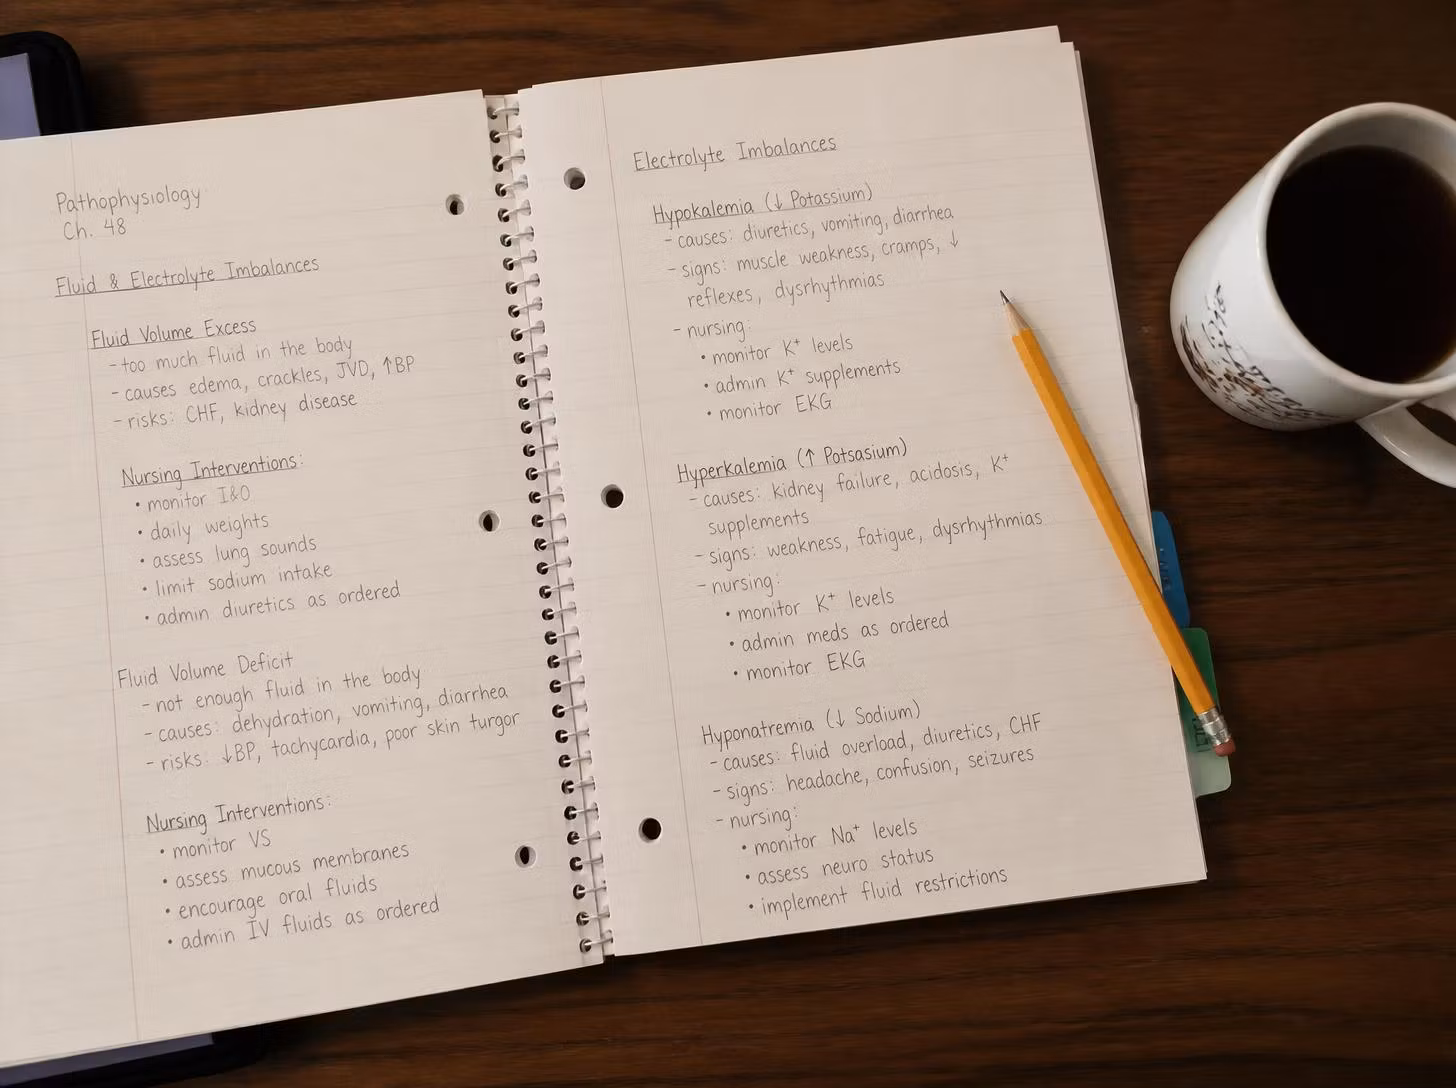 Pathophysiology
Ch. 48
Fluid & Electrolyte Imbalances
Fluid Volume Excess
- too much fluid in the body
- causes edema, crackles, JVD, ↑BP
- risks: CHF, kidney disease
Nursing Interventions:
• monitor I&O
• daily weights
• assess lung sounds
• limit sodium intake
• admin diuretics as ordered
Fluid Volume Deficit
- not enough fluid in the body
- causes: dehydration, vomiting, diarrhea
- risks: ↓BP, tachycardia, poor skin turgor
Nursing Interventions:
• monitor VS
• assess mucous membranes
• encourage oral fluids
• admin IV fluids as ordered
Electrolyte Imbalances
Hypokalemia (↓ Potassium)
- causes: diuretics, vomiting, diarrhea
- signs: muscle weakness, cramps, ↓
reflexes, dysrhythmias
- nursing:
• monitor K⁺ levels
• admin K⁺ supplements
• monitor EKG
Hyperkalemia (↑ Potsasium)
- causes: kidney failure, acidosis, K⁺
supplements
- signs: weakness, fatigue, dysrhythmias
- nursing:
• monitor K⁺ levels
• admin meds as ordered
• monitor EKG
Hyponatremia (↓ Sodium)
- causes: fluid overload, diuretics, CHF
- signs: headache, confusion, seizures
- nursing:
• monitor Na⁺ levels
• assess neuro status
• implement fluid restrictions